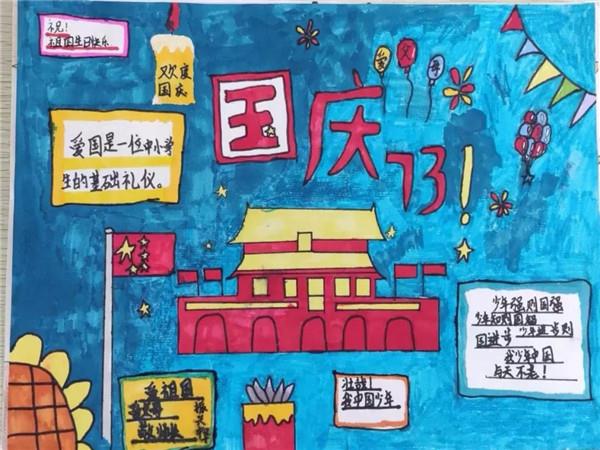 祝！
祖国生日快乐
欢度
国庆
国庆73！
爱国是一位中小学
生的基础礼仪。
少年强则国强
少年智则国智
少年进步则
国进步
我少年中国
与天不老！
爱祖国
壮哉！
我中国少年